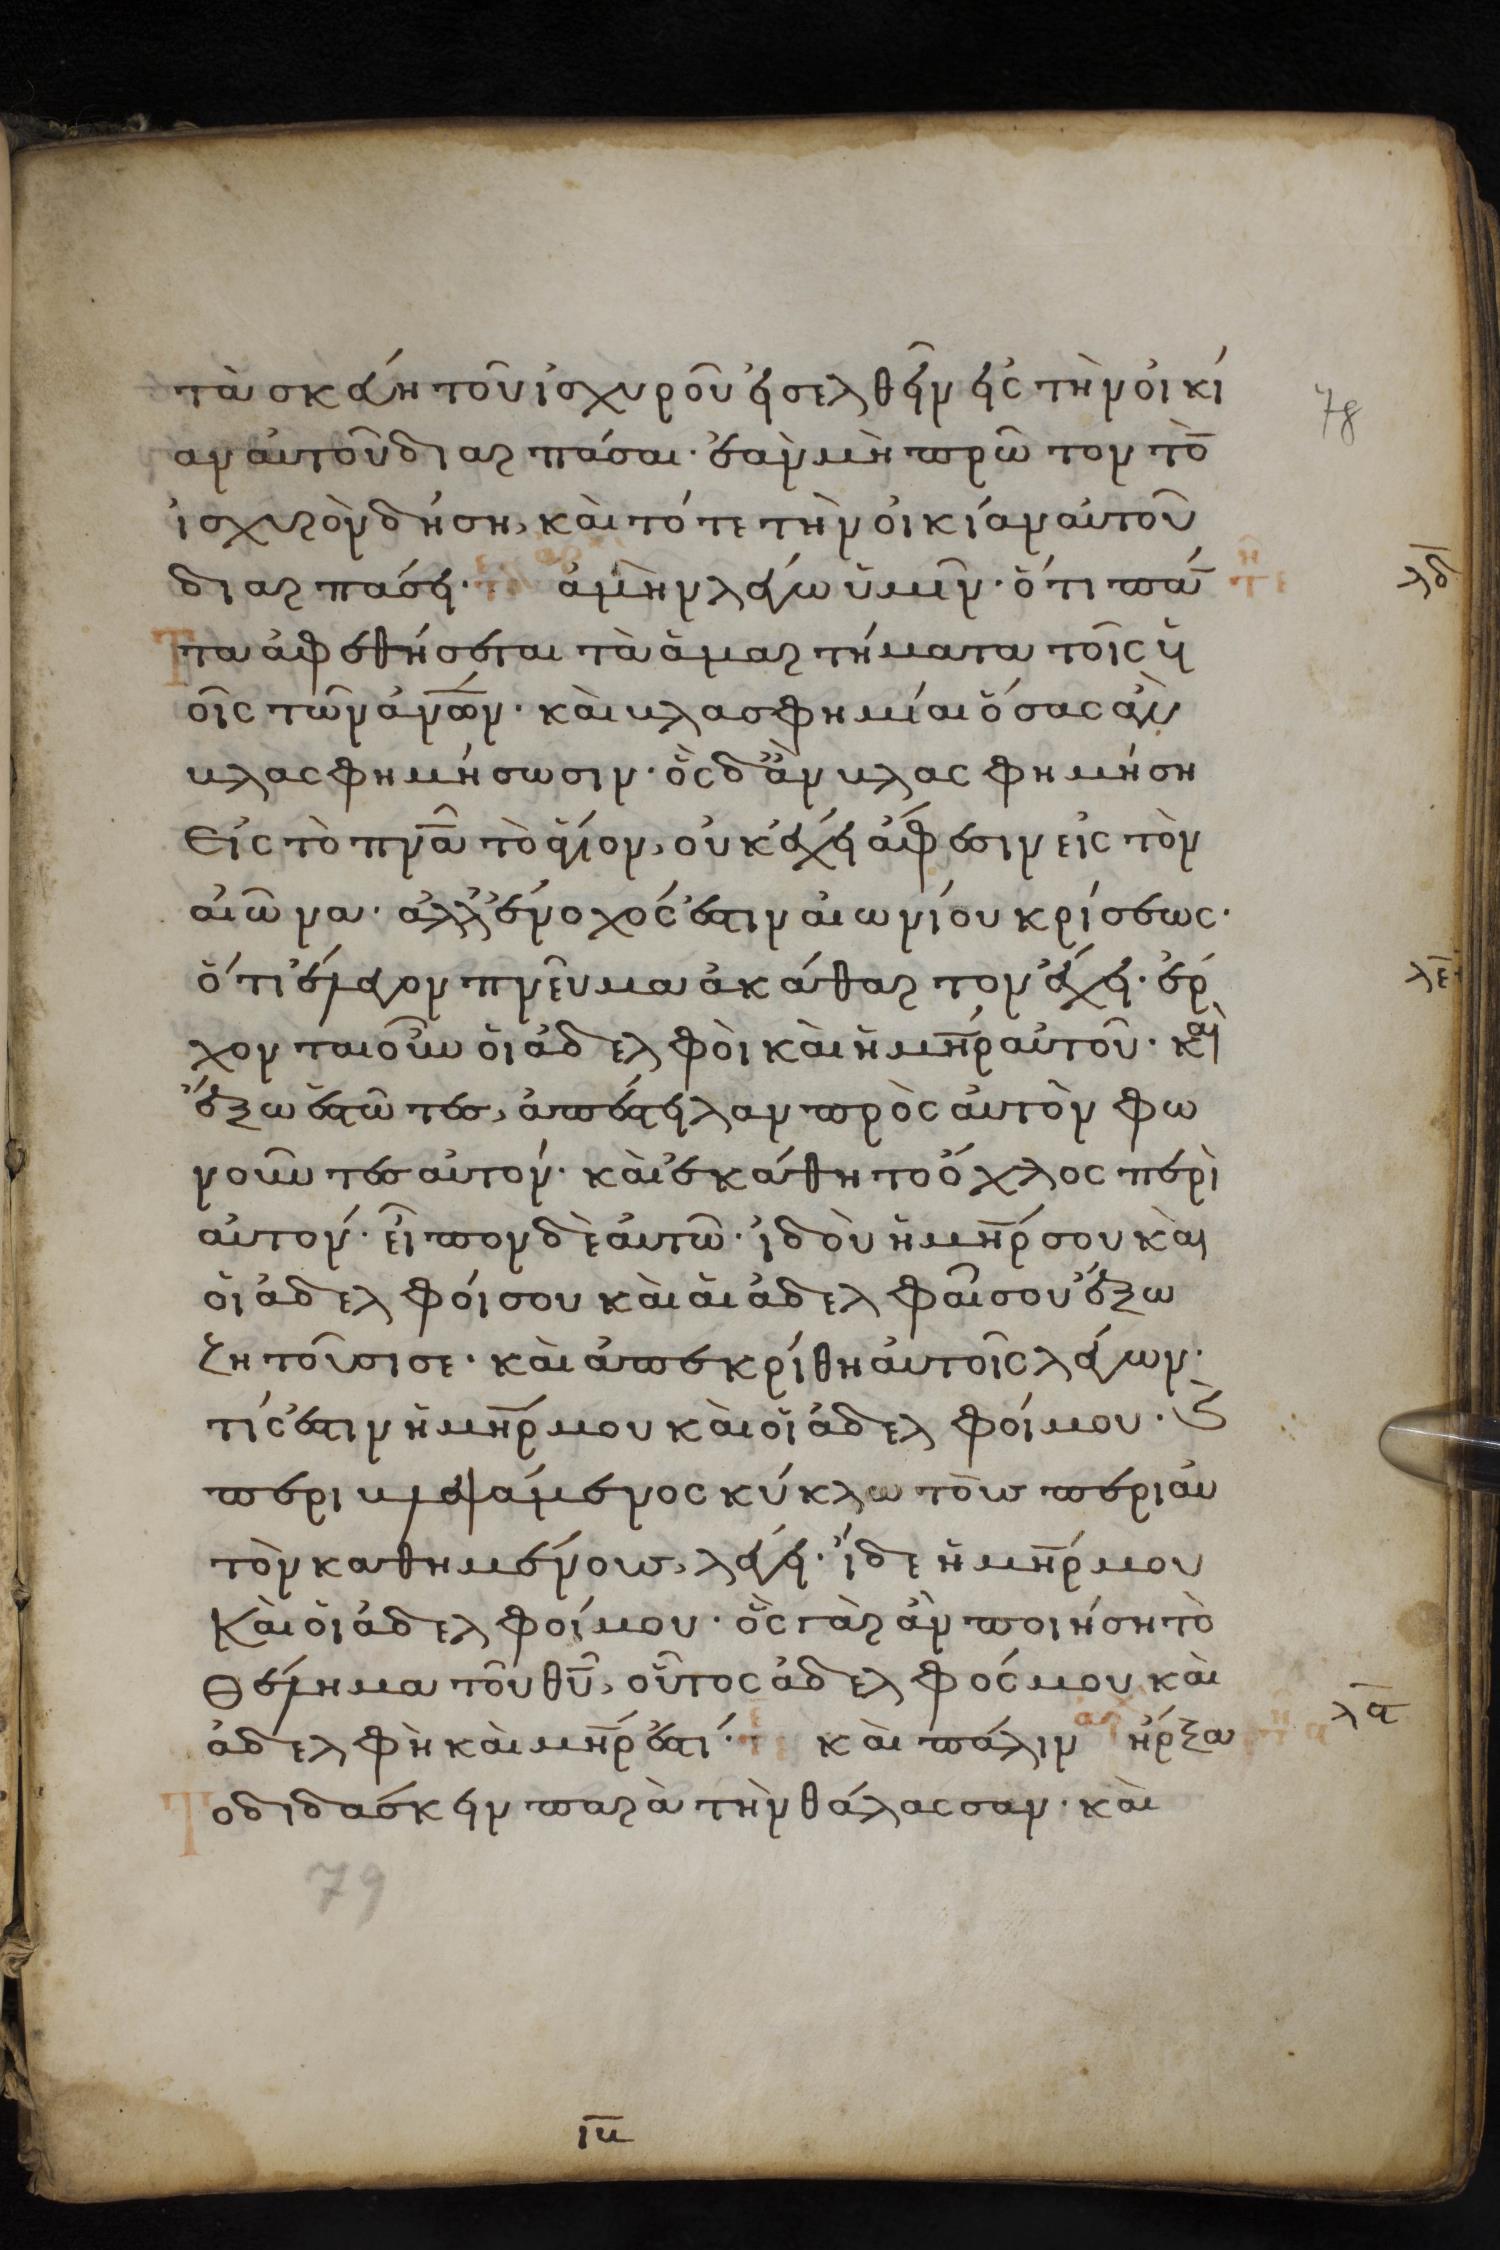 τὰ σκεύη τοῦ ἰσχυροῦ εἰσελθεῖν εἰς τὴν οἰκί
78
αν αὐτοῦ διαρπάσαι· ἐὰν μὴ πρῶτον τὸ̄
ἰσχυρὸν δήση, καὶ τότε τὴν οἰκίαν αὐτοῦ
διαρπάσει· ἀμὴν λέγω ὑμῖν· ὅτι πάν̄
λδ̄
τα ἀφεθήσεται τὰ ἁμαρτήματα τοῖς υἱ
οῖς τῶν ἀνω̅ν· καὶ βλασφημίαι ὅσας ἂν
βλασφημήσωσιν· ὃς δ' ἂν βλασφημήση
Εἰς τὸ πνᾱ τὸ ἅγιον, οὐκ ἔχει ἄφεσιν εἰς τὸν
αἰῶνα· ἀλλ' ἔνοχός ἐστιν αἰωνίου κρίσεως·
ὅτι ἔλεγον πνεῦμα ἀκάθαρτον ἔχει· ἔρ
λε̄
χονται οὖν οἱ ἀδελφοὶ καὶ ἡ μη̅ρ αὐτοῦ· καὶ
ἔξω ἑστῶτες, ἀπέστειλαν πρὸς αὐτὸν φω
νοῦντες αὐτόν· καὶ ἐκάθητο ὄχλος περὶ
αὐτόν· εἶπον δὲ αὐτῶ· ἰδοὺ ἡ μη̅ρ σου καὶ
οἱ ἀδελφοί σου καὶ αἱ ἀδελφαῖ σου ἔξω
ζητοῦσι σε· καὶ ἀπεκρίθη αὐτοῖς λέγων·
τίς ἐστιν ἡ μη̅ρ μου καὶ οἱ ἀδελφοί μου· ϗ
περιβλεψάμενος κύκλω τοὺς περὶ αὐ
τὸν καθημένους, λέγει· ἴδε ἡ μη̅ρ μου
Καὶ οἱ ἀδελφοί μου· ὃς γὰρ ἂν ποιήση τὸ
θέλημα τοῦ θῡ, οὗτος ἀδελφός μου καὶ
ἀδελφὴ καὶ μη̅ρ ἐστί· καὶ πάλιν ἤρξα
λϛ̄
Το διδάσκειν παρὰ τὴν θάλασσαν· καὶ
79
ιβ̄